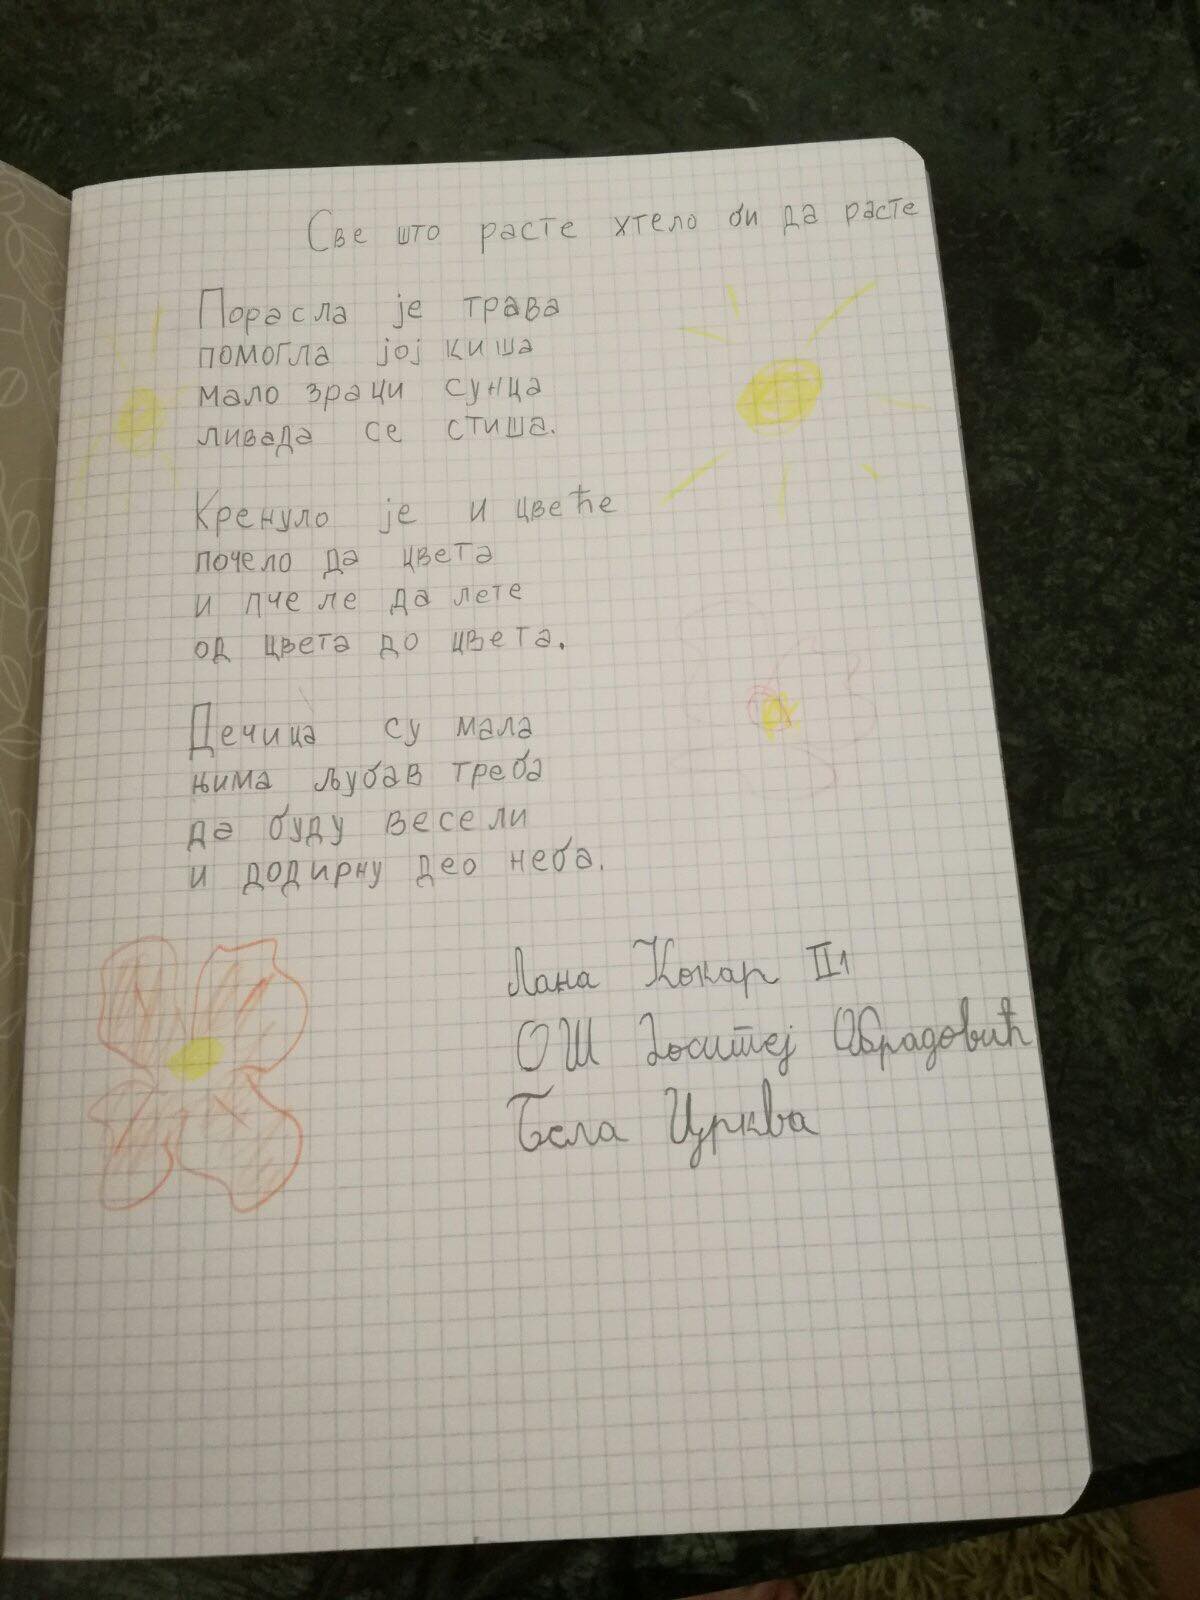 Све што расте хтело би да расте
Порасла је трава
помогла јој киша
мало зраци сунца
ливада се стиша.
Кренуло је и цвеће
почело да цвета
и пчеле да лете
од цвета до цвета.
Дечица су мала
њима љубав треба
да буду весели
и додирну део неба.
Лана Кокар II1
ОШ Доситеј Обрадовић
Бела Црква